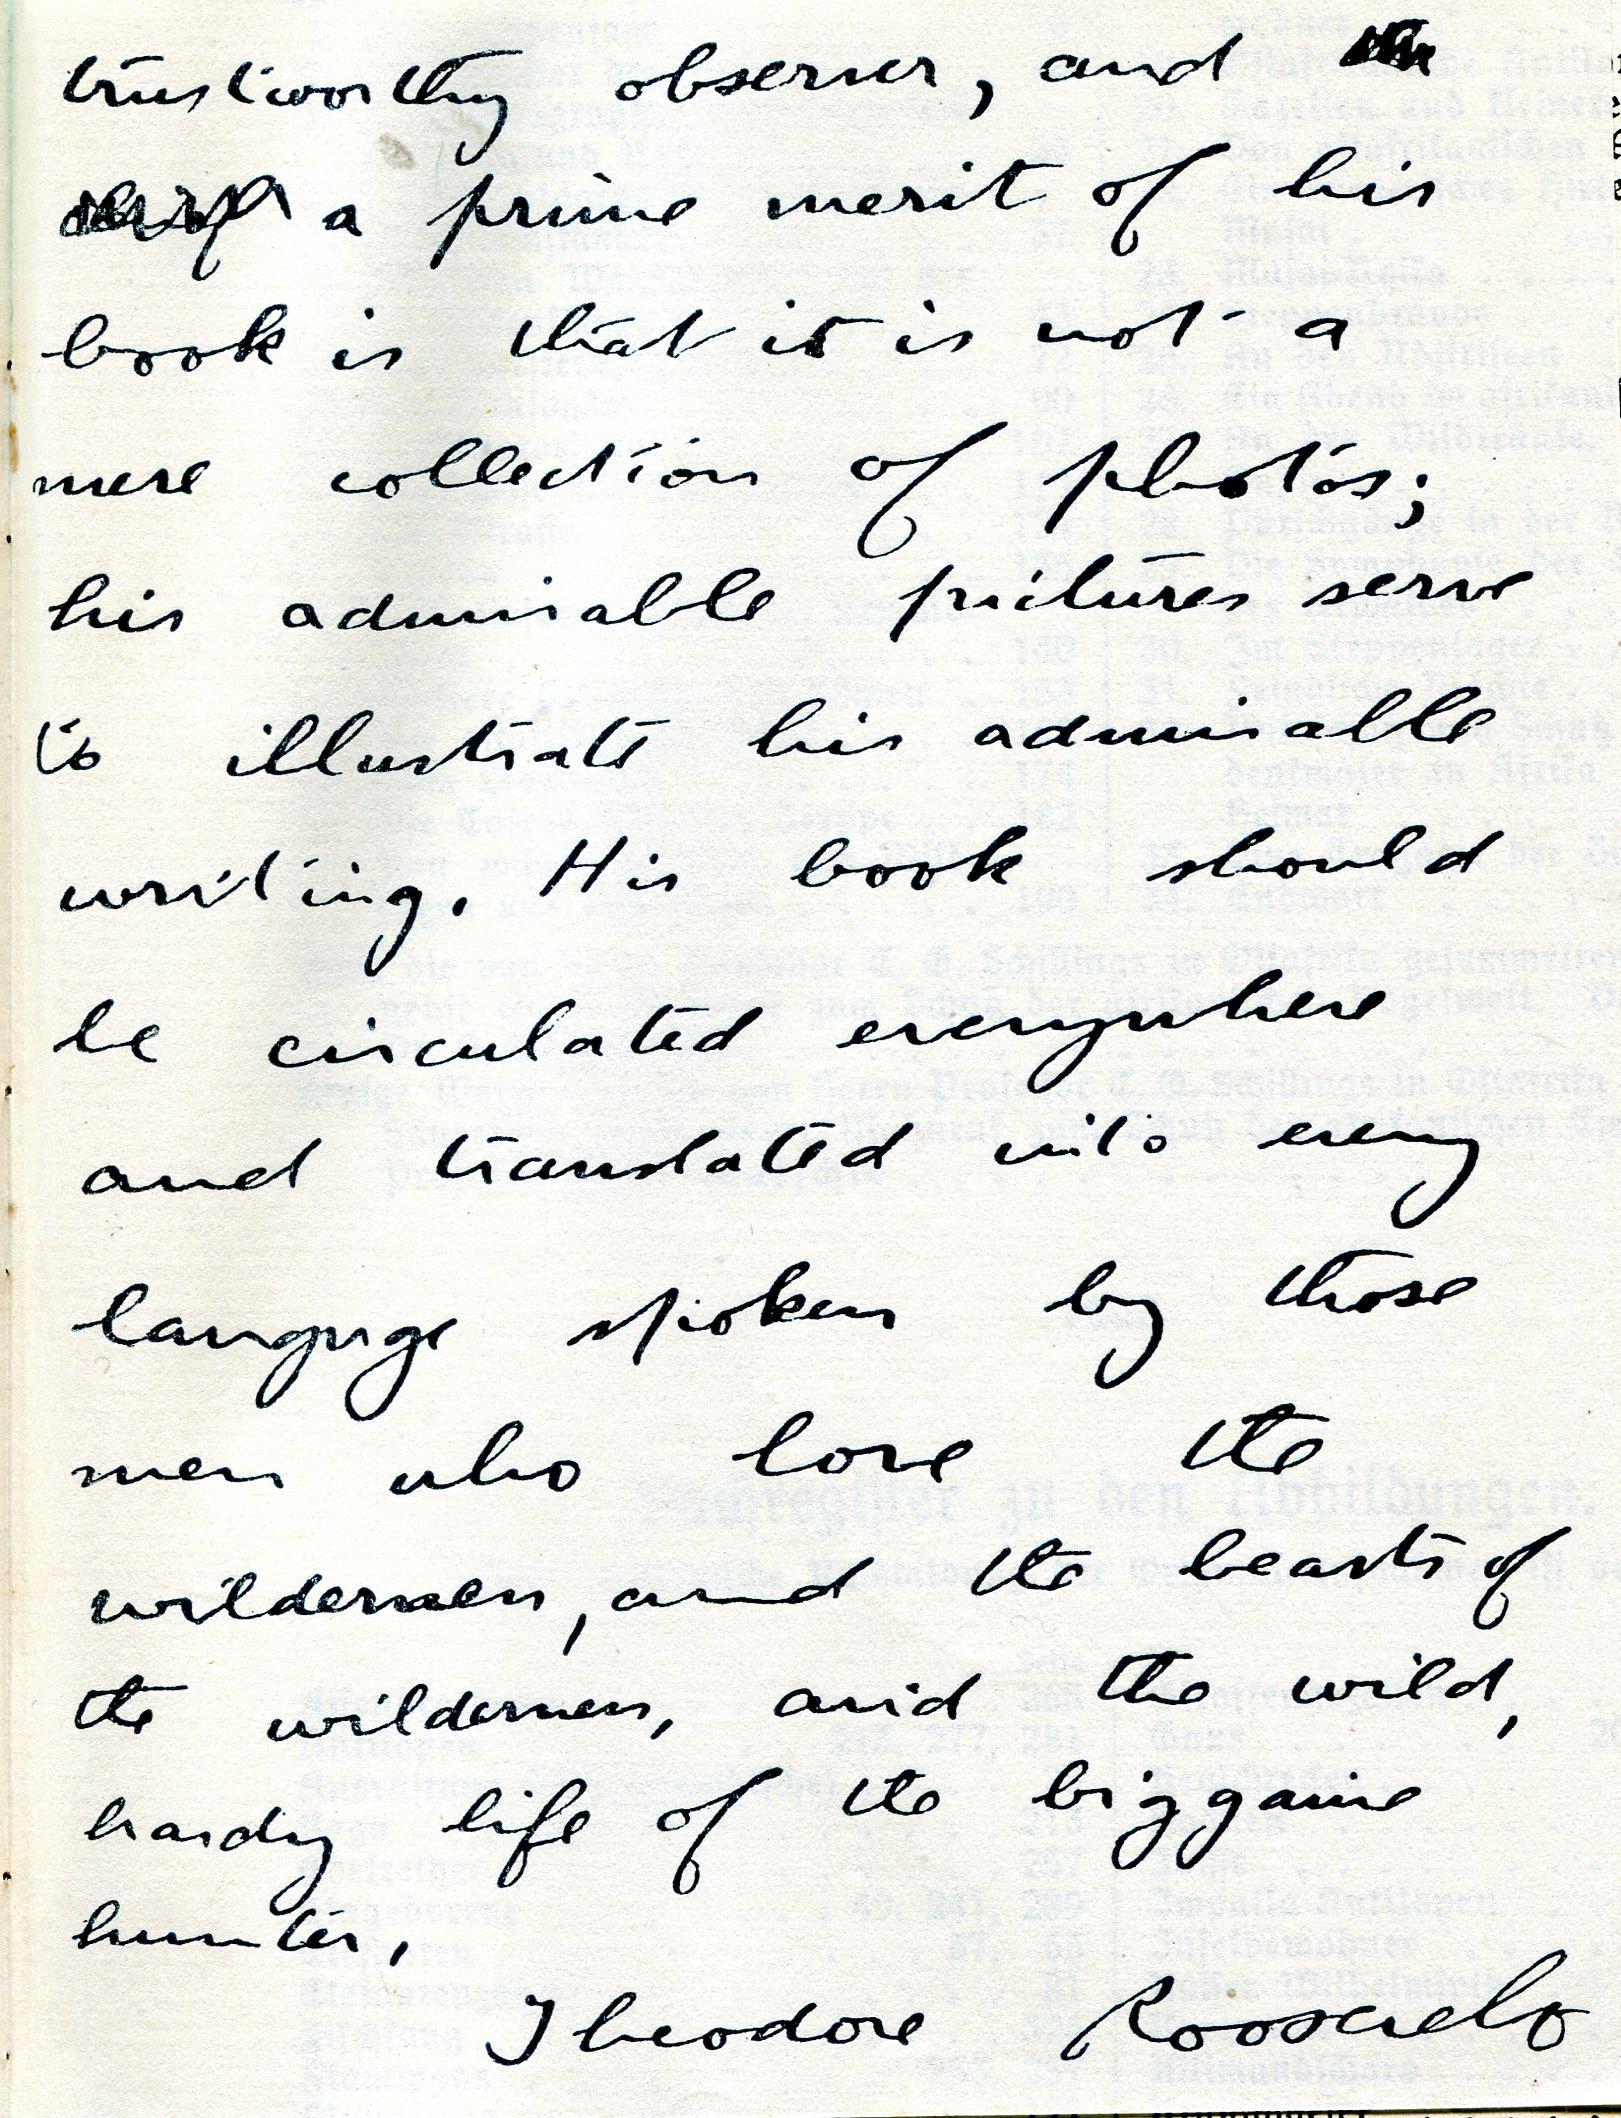 trustworthy observer, and
a prime merit of his
book is that it is not a
mere collection of photos;
his admirable pictures serve
to illustrate his admirable
writing. His book should
be circulated everywhere
and translated into every
language spoken by those
men who love the
wilderness, and the beasts of
the wilderness, and the wild,
hardy life of the big game
hunter,
Theodore Roosevelt